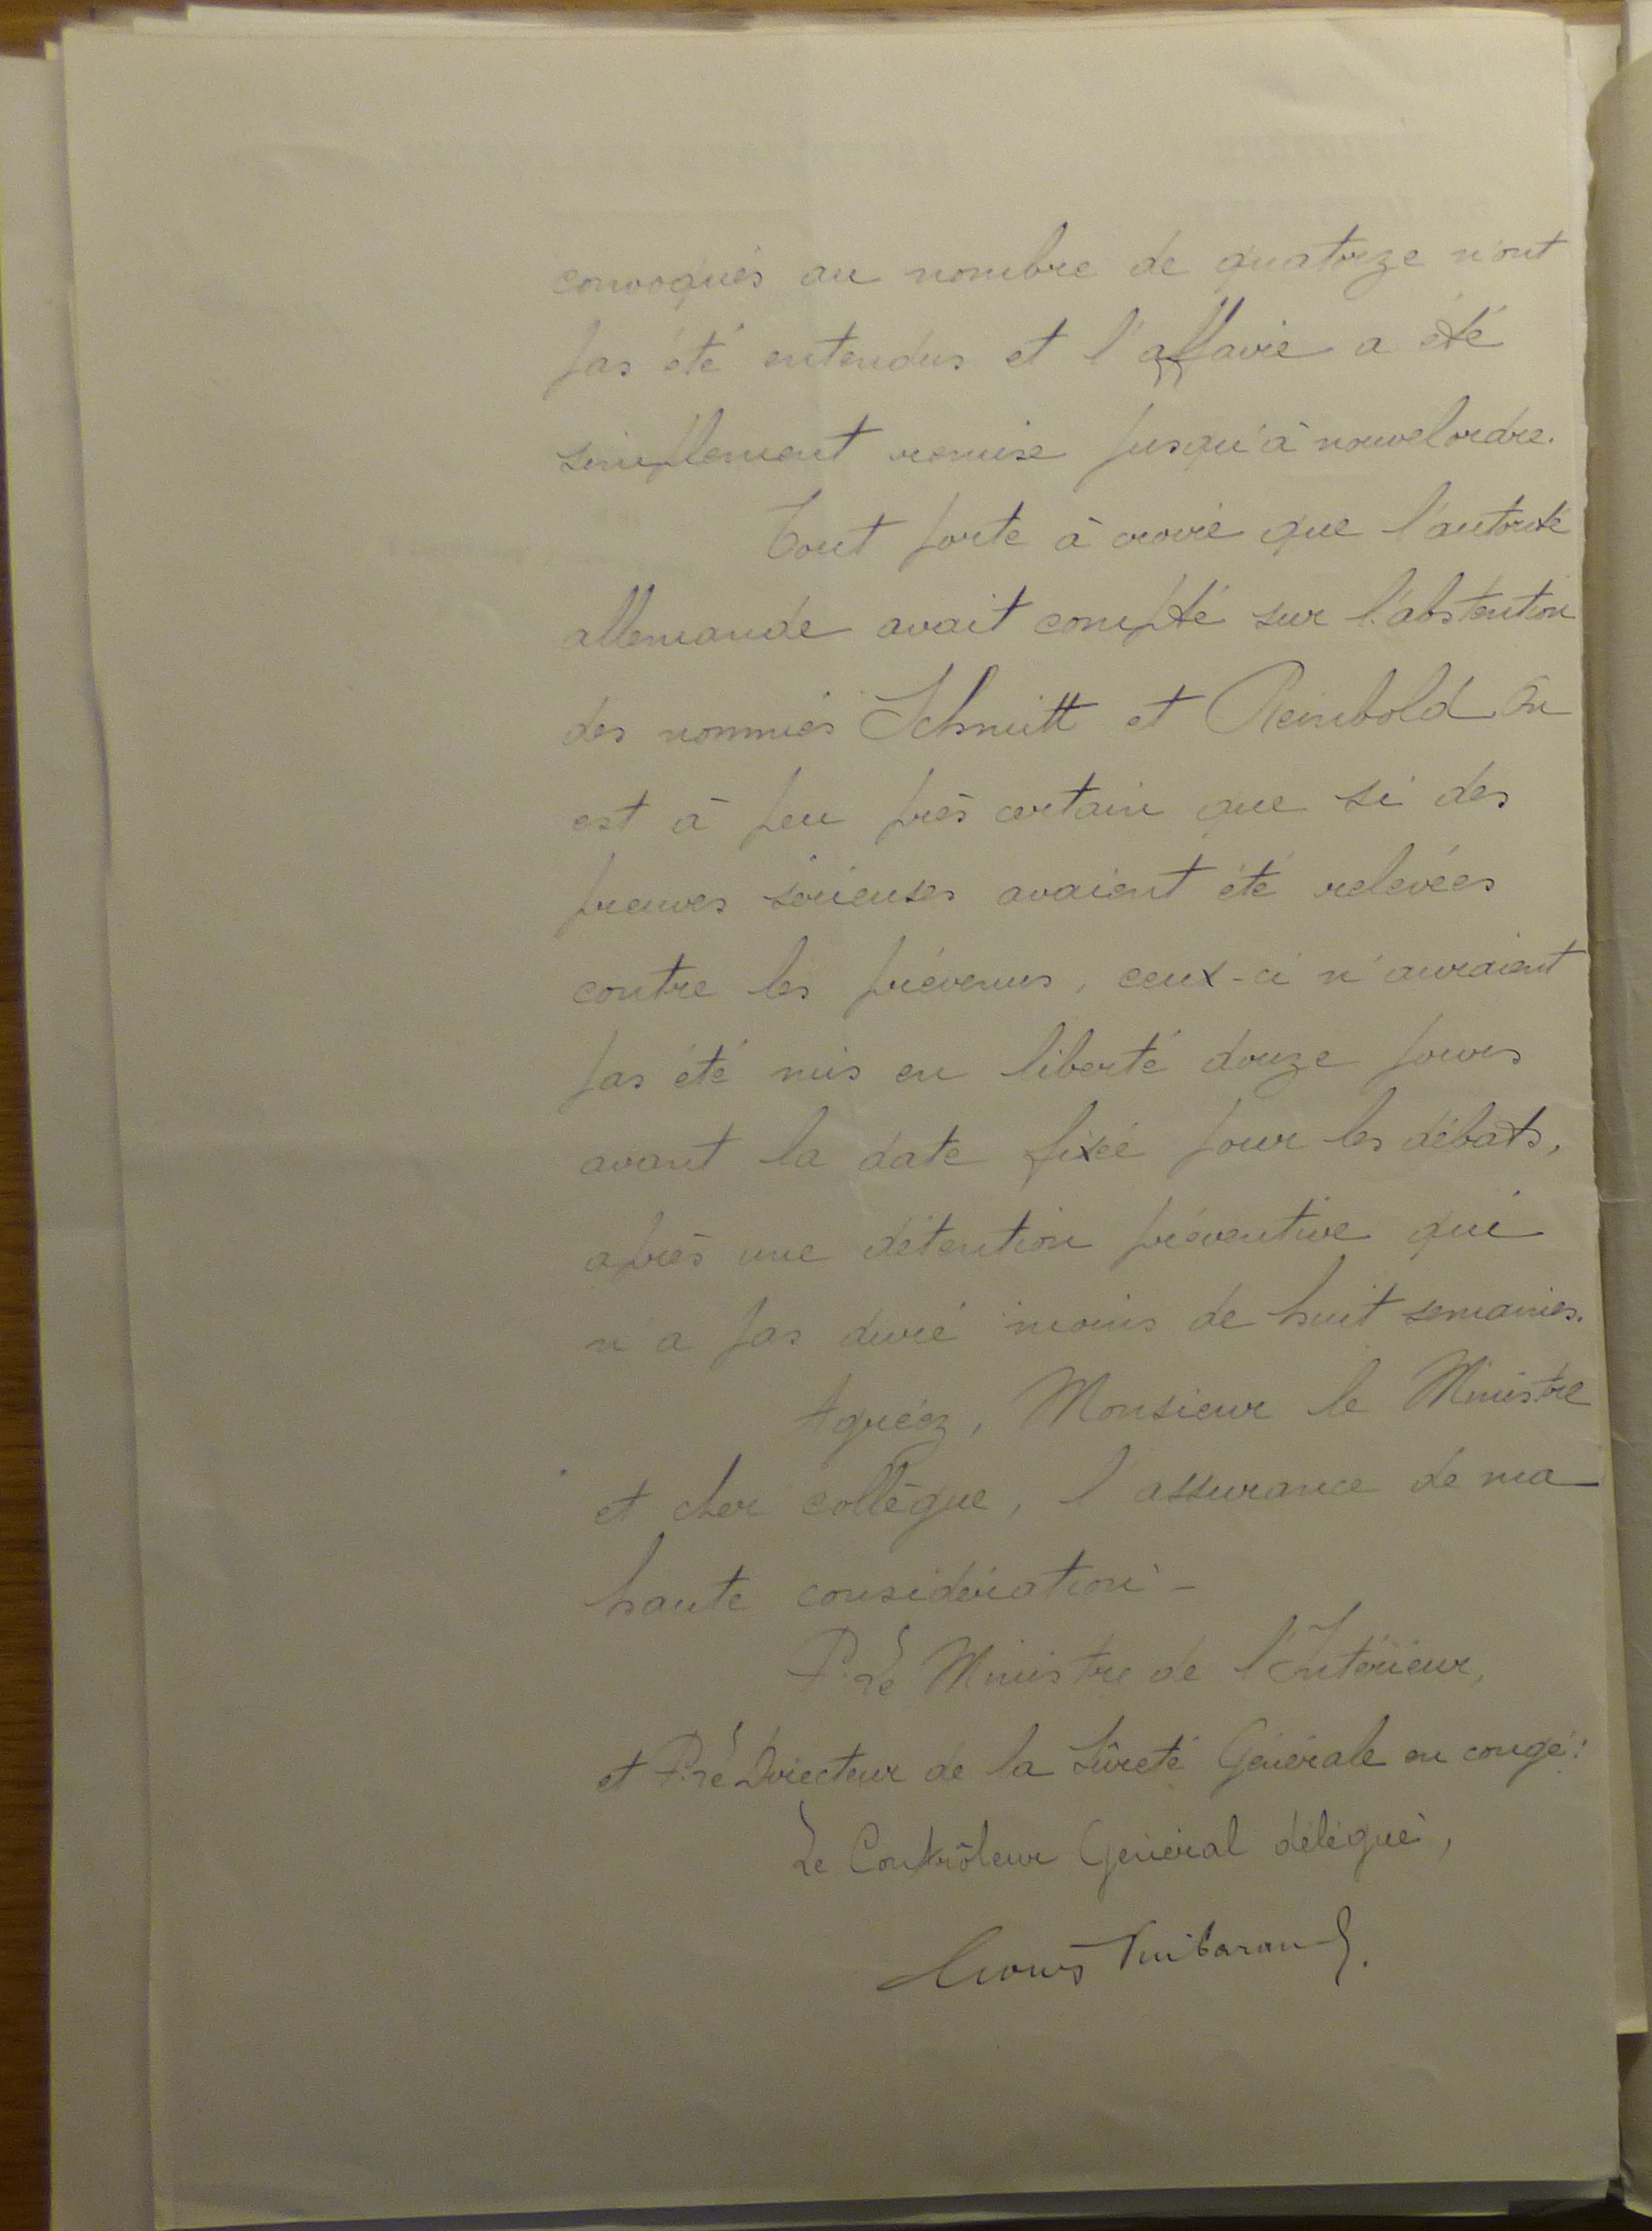 convoqués au nombre de quatorze n'ont
pas été entendus et l'affaire a été
simplement remise jusqu'à nouvel ordre.
Tout porte à croire que l'autorité
allemande avait compté sur l'abstention
des nommés Schmitt et Reinbold On
est à peu près certain que si des
preuves sérieuses avaient été relevées
contre les prévenus, ceux-ci n'auraient
pas été mis en liberté douze jours
avant la date fixée pour les débats,
après une détention préventive qui
n'a pas duré moins de huit semaines.
Agréez, Monsieur le Ministre
et cher collègue, l'assurance de ma
haute considération -
P. Le Ministre de l'Intérieur,
et P. Le Directeur de la Sûreté Générale en congé:
Le Contrôleur Général délégué,